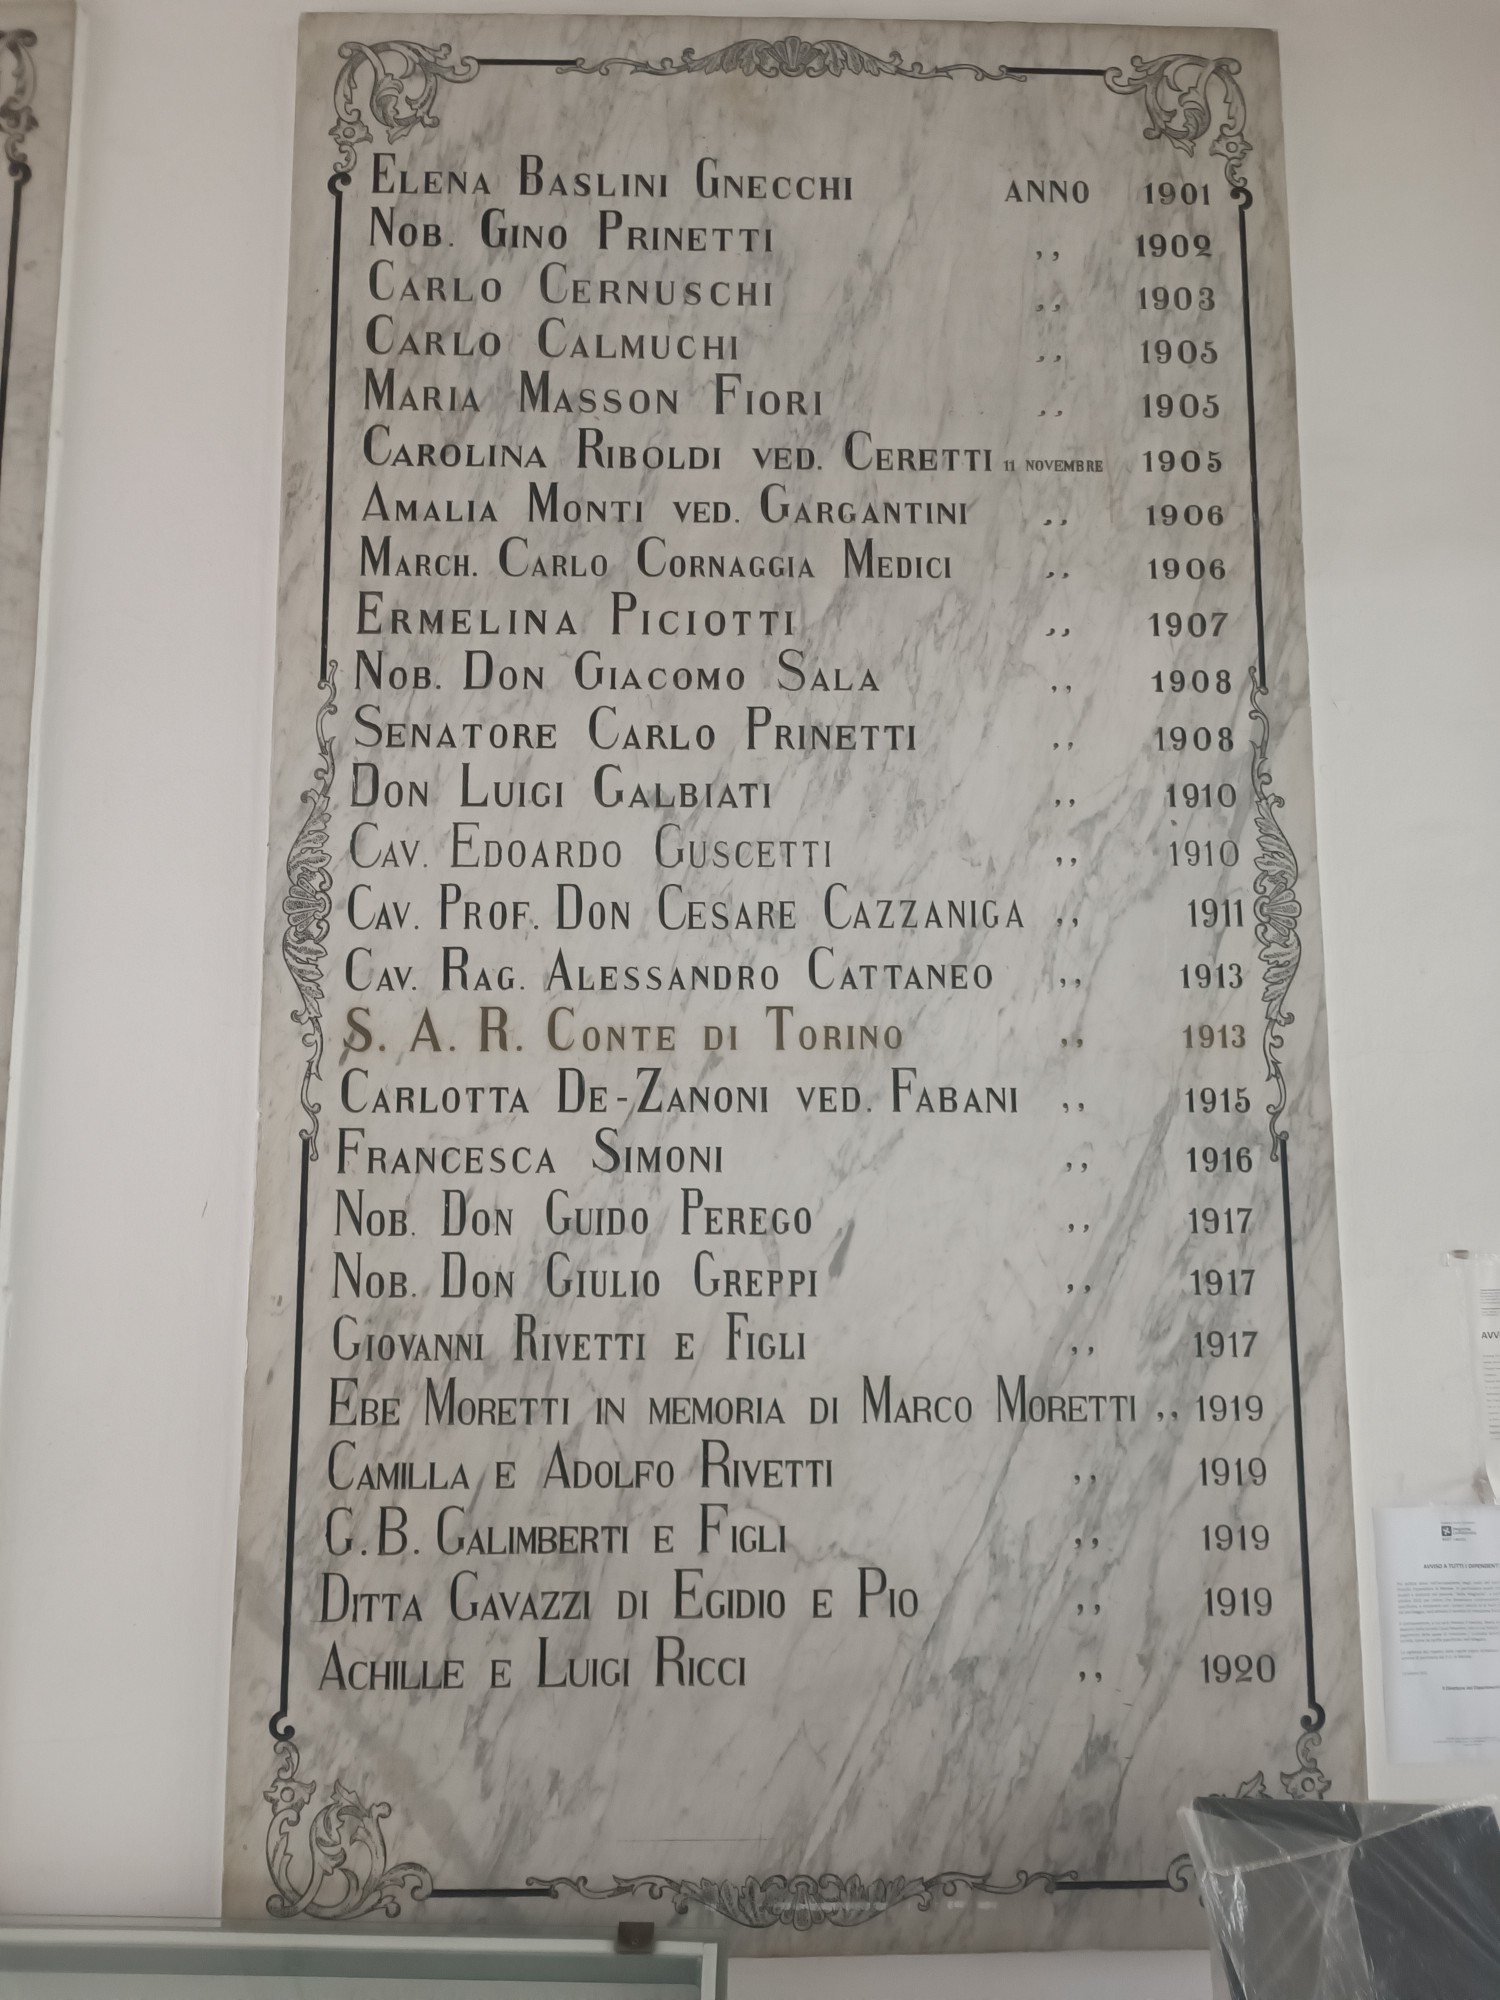 ELENA BASLINI GNECCHI ANNO 1901
NOB. GINO PRINETTI ,, 1902
CARLO CERNUSCHI ,, 1903
CARLO CALMUCHI ,, 1905
MARIA MASSON FIORI ,, 1905
CAROLINA RIBOLDI VED. CERETTI 11 NOVEMBRE 1905
AMALIA MONTI VED. GARGANTINI ,, 1906
MARCH. CARLO CORNAGGIA MEDICI ,, 1906
ERMELINA PICIOTTI ,, 1907
NOB. DON GIACOMO SALA ,, 1908
SENATORE CARLO PRINETTI ,, 1908
DON LUIGI GALBIATI ,, 1910
CAV. EDOARDO GUSCETTI ,, 1910
CAV. PROF. DON CESARE CAZZANIGA ,, 1911
CAV. RAG. ALESSANDRO CATTANEO ,, 1913
S. A. R. CONTE DI TORINO ,, 1913
CARLOTTA DE-ZANONI VED. FABANI ,, 1915
FRANCESCA SIMONI ,, 1916
NOB. DON GUIDO PEREGO ,, 1917
NOB. DON GIULIO GREPPI ,, 1917
GIOVANNI RIVETTI E FIGLI ,, 1917
EBE MORETTI IN MEMORIA DI MARCO MORETTI ,, 1919
CAMILLA E ADOLFO RIVETTI ,, 1919
G.B. GALIMBERTI E FIGLI ,, 1919
DITTA GAVAZZI DI EGIDIO E PIO ,, 1919
ACHILLE E LUIGI RICCI ,, 1920
AVVISO A TUTTI I DIPENDENTI